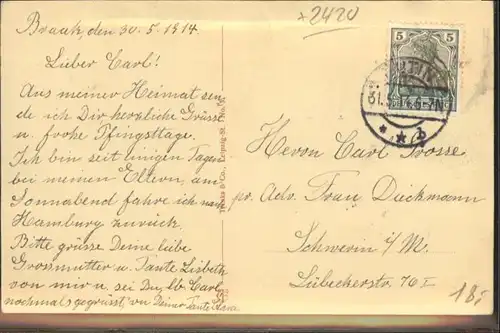 Braak, den 30.5.1914.
Lieber Carl!
Aus meiner Heimat sen-
de ich Dir herzliche Grüsse
u. frohe Pfingsttage.
Ich bin seit einigen Tagen
bei meinen Eltern, am
Sonnabend fahre ich nach
Hamburg zurück.
Bitte grüsse Deine liebe
Grossmutter u. Tante Lisbeth
von mir u. sei Du, lb. Carl
nochmals gegrüsst von Deiner Tante
x2420
5 5
31.5.14
Herrn Carl Trosse
pr. Adr. Frau Dieckmann
Schwerin i/M.
Lübeckerstr. 76 I
18,-
Trinks & Co., Leipzig